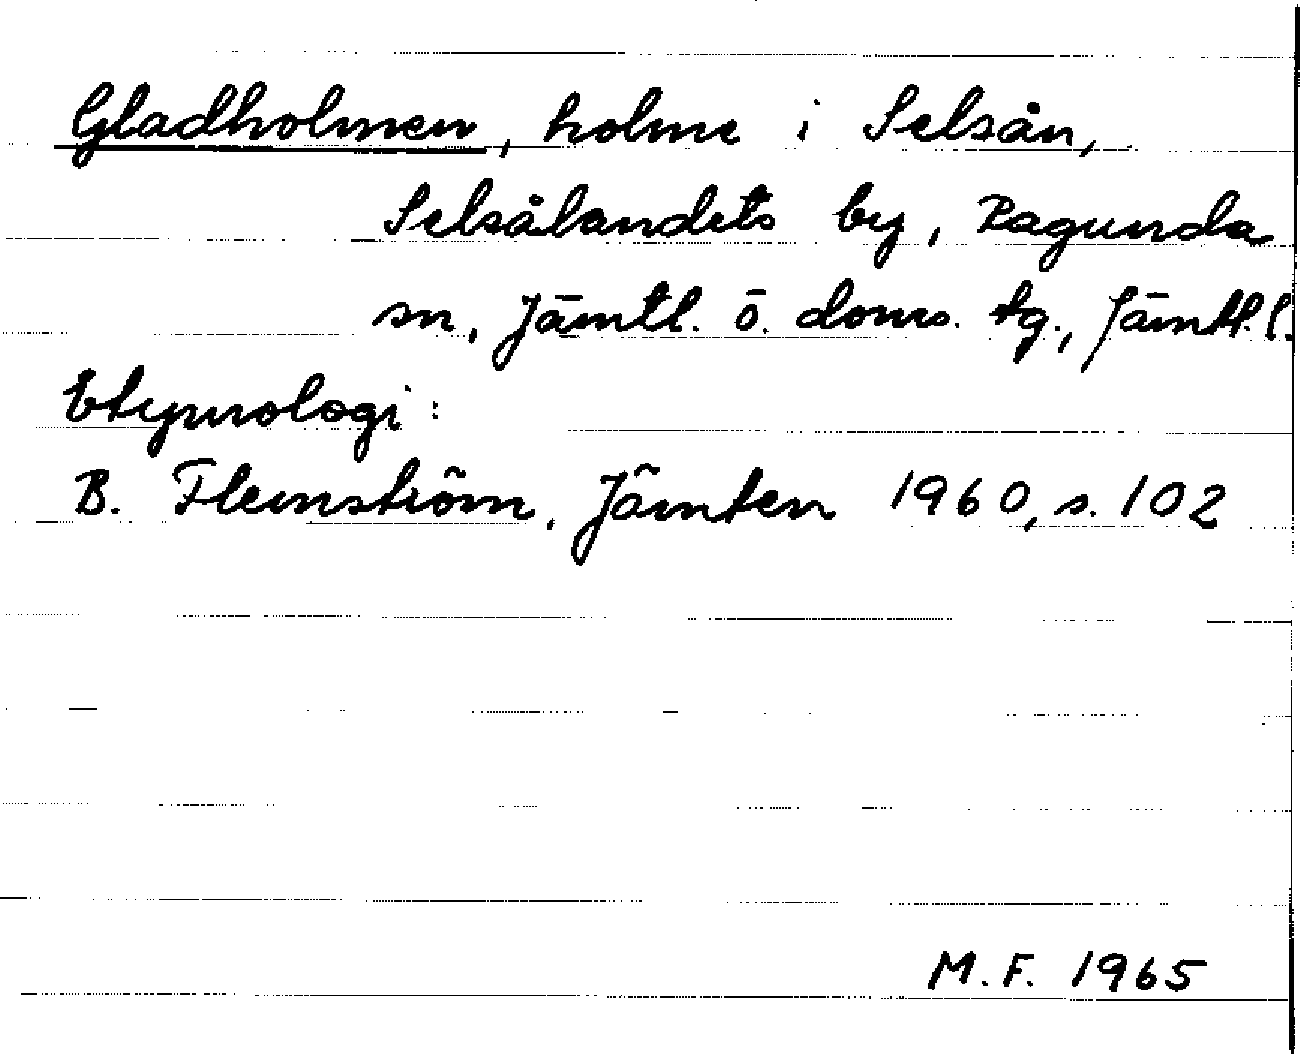 Gladholmen, holme i Selsån,
Selsålandets by, Ragunda
sn, Jämtl. ö. doms. tg., Jämtl. l.
Etymologi:
B. Flemström, Jämten 1960, s. 102
M.F. 1965